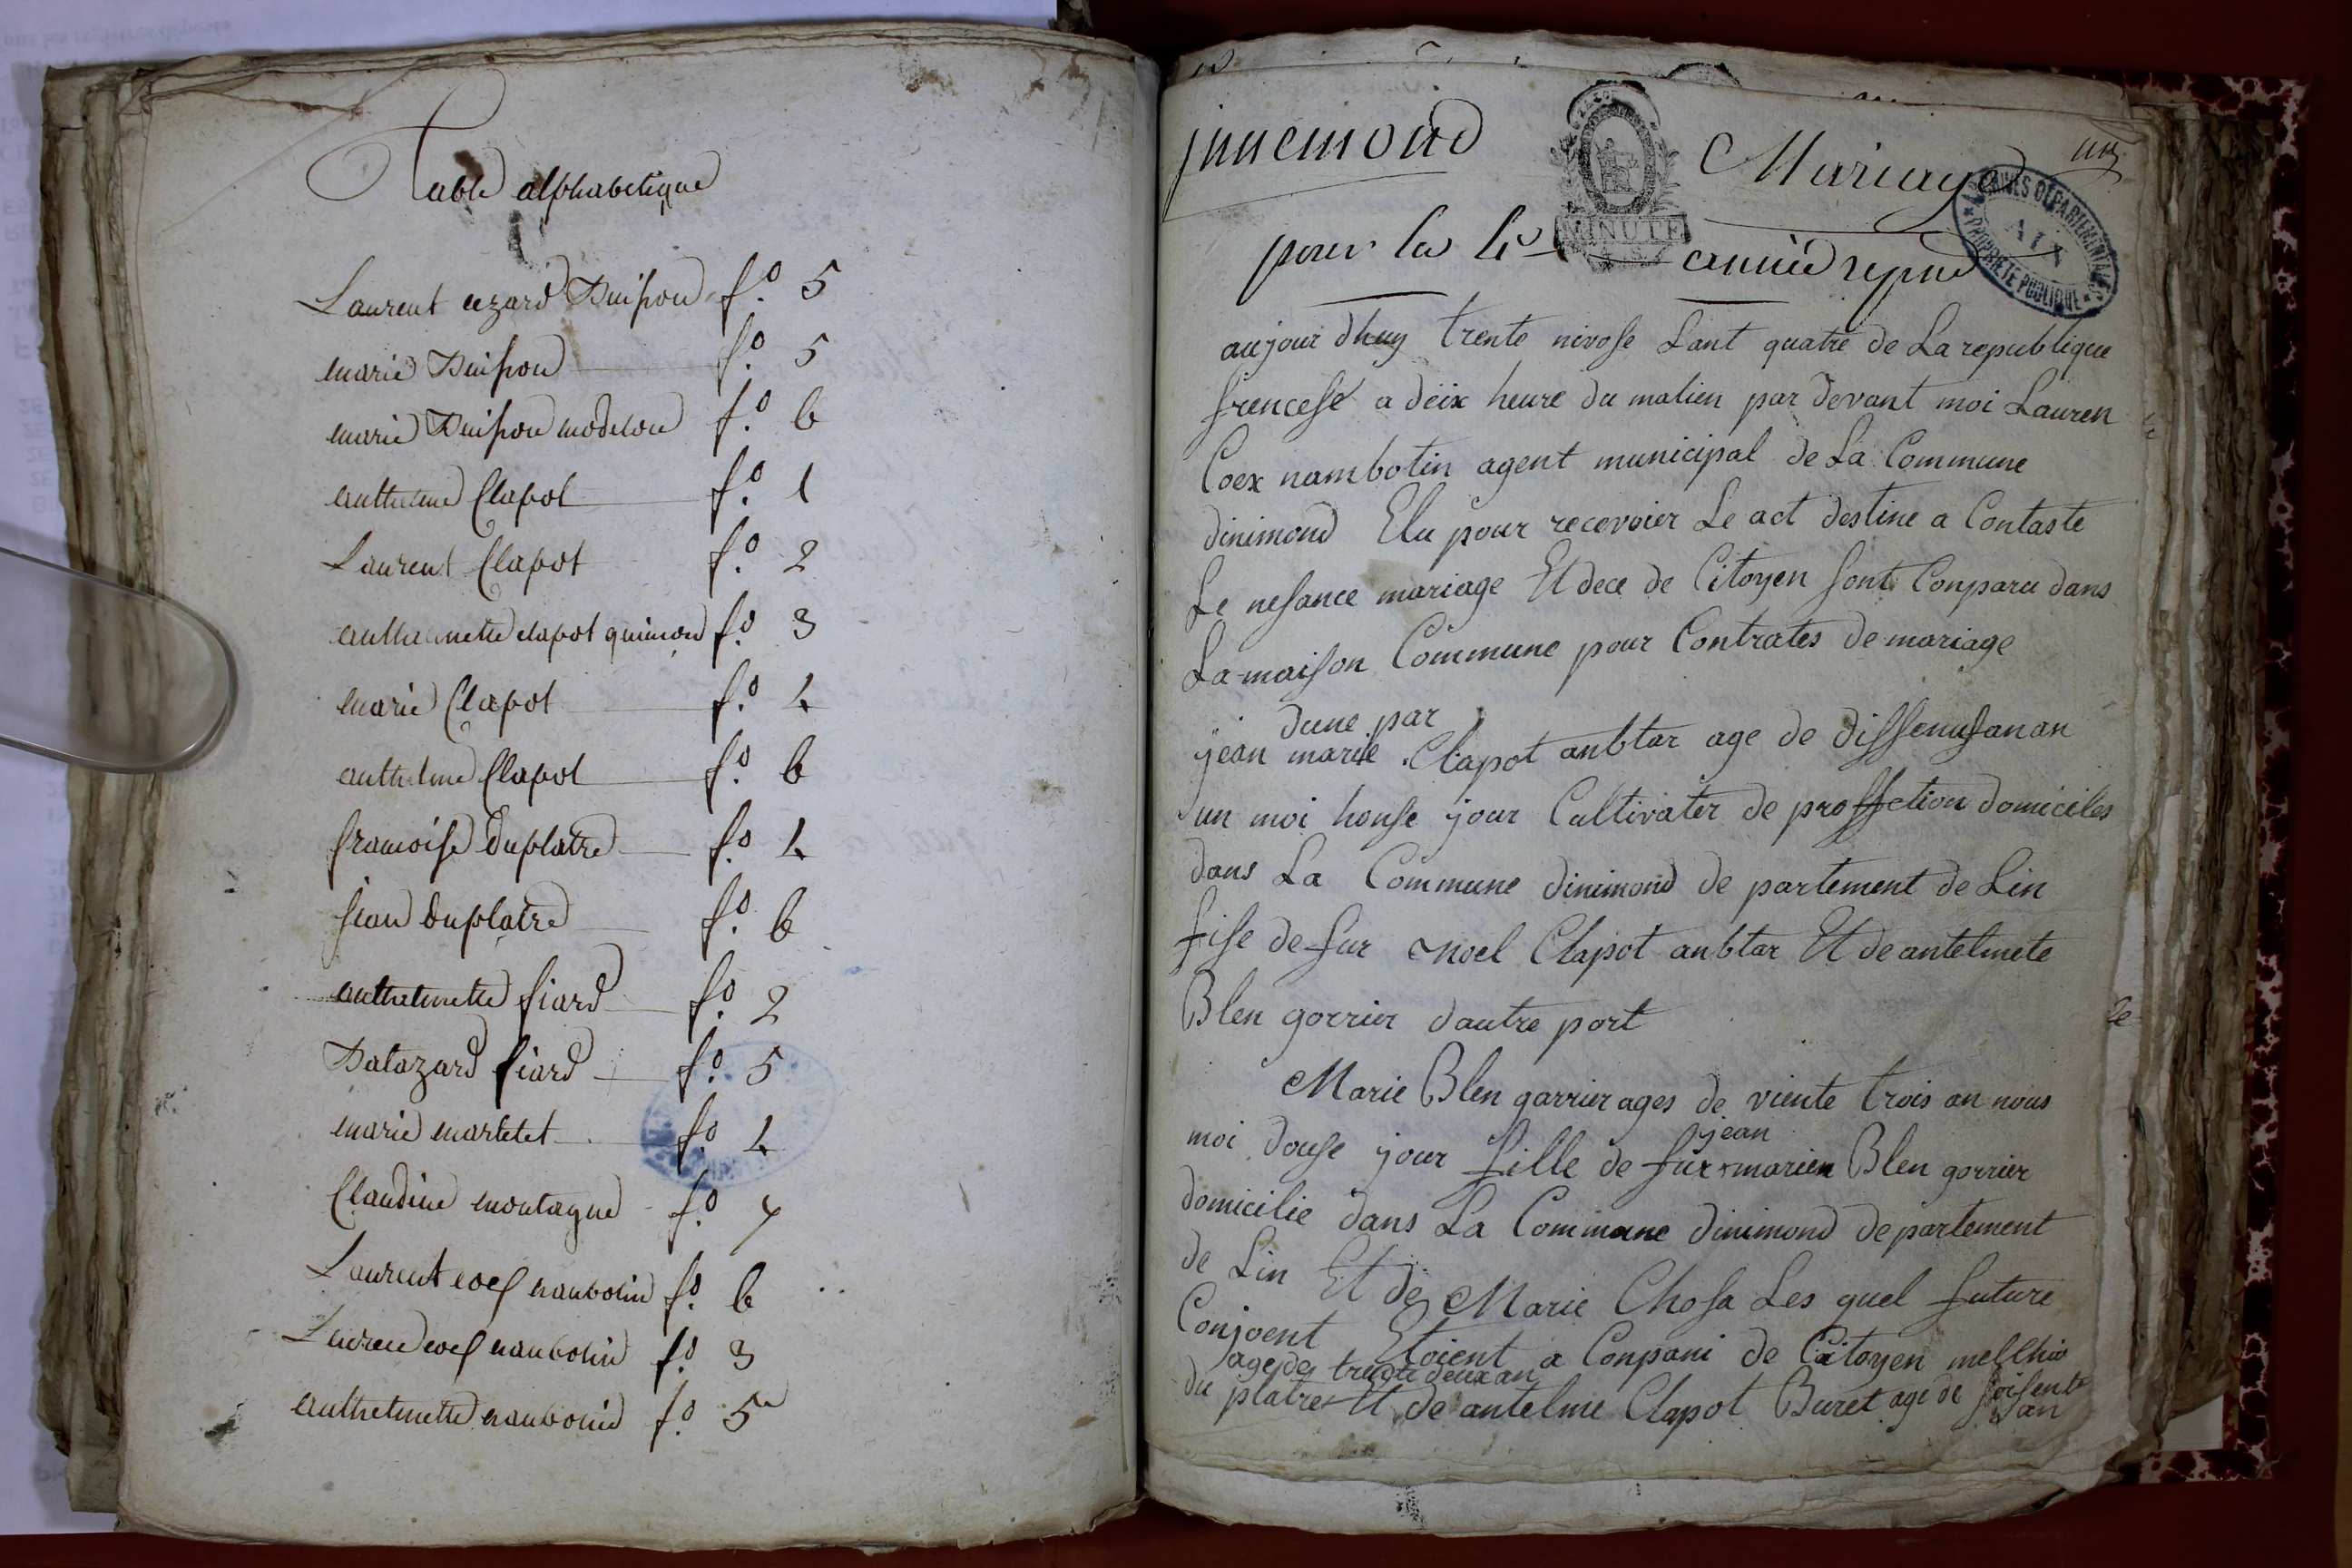 Table alphabetique
Laurent cezard Buisson f.o 5
marie Buisson f.o 5
marie Buisson modelon f.o 6
anthelme Clapot f.o 1
Laurent Clapot f.o 2
anthelmette clapot quimon f.o 3
marie Clapot f.o 4
anthelme Clapot f.o 6
francoise Duplatre f.o 4
jean Duplatre f.o 6
anthelmette fiard f.o 2
Balazard fiard f.o 5
marie martelet f.o 4
Claudine montagne f.o 7
Laurent coex nanbotin f.o 6
Laurent coex nanbotin f.o 3
anthelmette nanbotin f.o 5
jnnemond
Mariage
MINUTE
ARCHIVES DEPARTEMENTALES
AIN
PROPRIETE PUBLIQUE
pour la 4e année repue
aujour dhuy trente nivose Lant quatre de La republique
francese a deix heure du matien par devant moi Lauren
Coex nambotin agent municipal de La Commune
dinimond Elu pour recevoier Le act destine a Contaste
Le nesance mariage Et dece de Citoyen sont Conparu dans
La maison Commune pour Contrates de mariage
dune par
jean marie Clapot anbtar age de dissenufanan
un moi honse jour Cultivater de proffction domiciles
dans La Commune dinimond de partement de Lin
fise de fur Noel Clapot anbtar Et de antelmete
Blen gorrier dautre port
Marie Blen garrier ages de viente trois an nous
jean
moi douse jour fille de fur marien Blen gorrier
domicilie dans La Commune dinimond departement
de Lin Et de Marie Chosa Les quel future
Conjoent Etoient a Conpani de Citoyen melchio
age de trente deux an
du platre Et de antelme Clapot Buret age de soisente
an